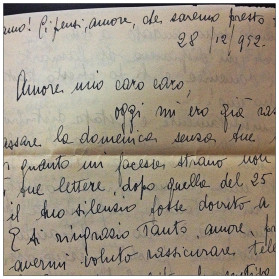 amo! Ci pensi, amore, che saremo presto
28/12/952.
Amore mio caro caro,
oggi mi ero già
assare la domenica senza tue
quanto mi facesse strano non
tue lettere, dopo quella del 25
il tuo silenzio fosse dovuto a
E ti ringrazio tanto amore, 
avermi voluto rassicurare